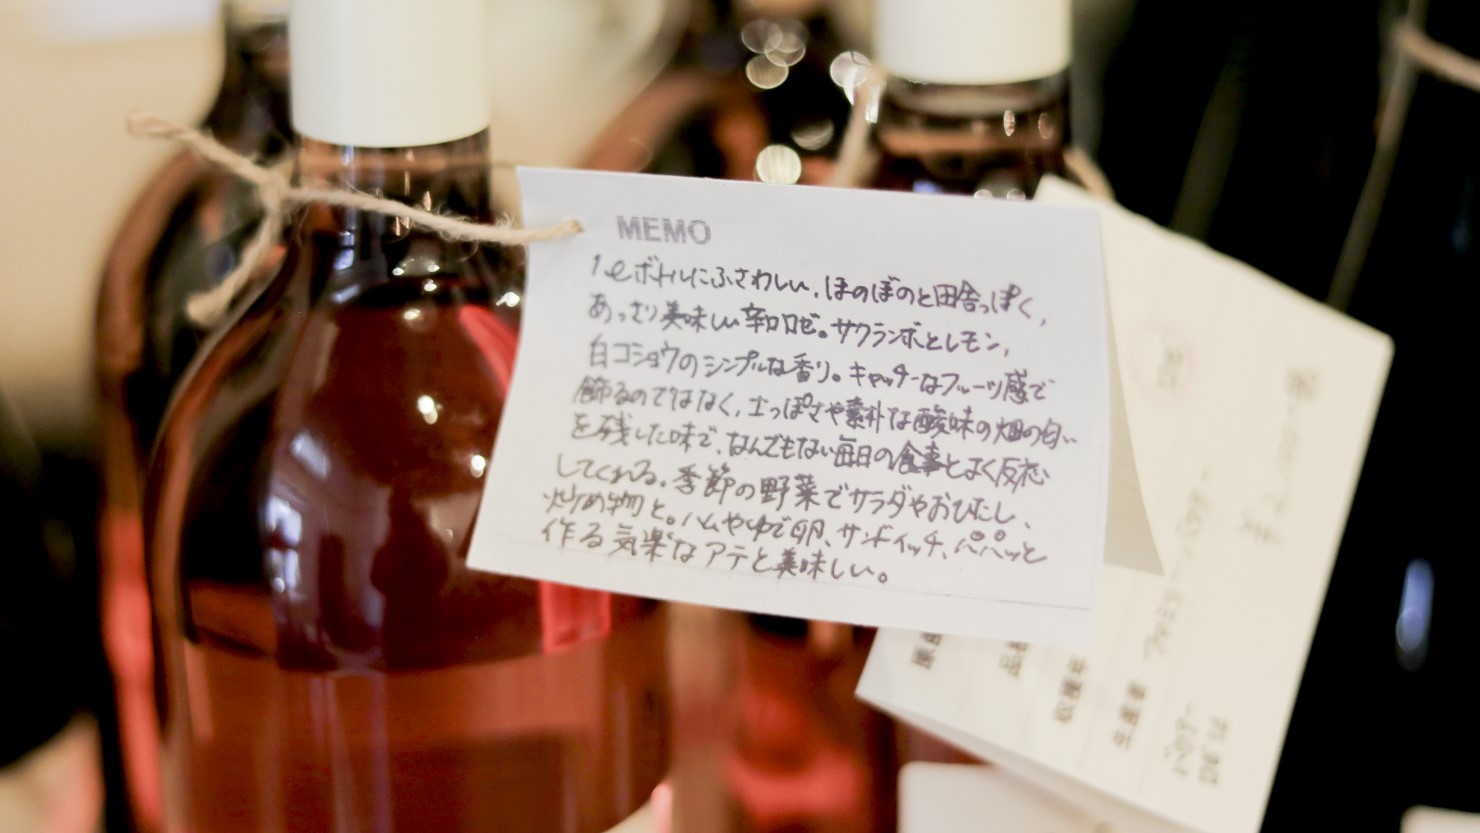 MEMO
1ℓボトルにふさわしい、ほのぼのと田舎っぽく、
あっさり美味しい辛口ロゼ。サクランボとレモン、
白コショウのシンプルな香り。キャッチーなフルーツ感で
飾るのではなく、土っぽさや素朴な酸味の畑の匂い
を残した味で、なんでもない毎日の食事とよく反応
してくれる。季節の野菜でサラダやおひたし、
炒め物と。ハムやゆで卵、サンドイッチ、パパッと
作る気楽なアテと美味しい。
収穫年
生産者